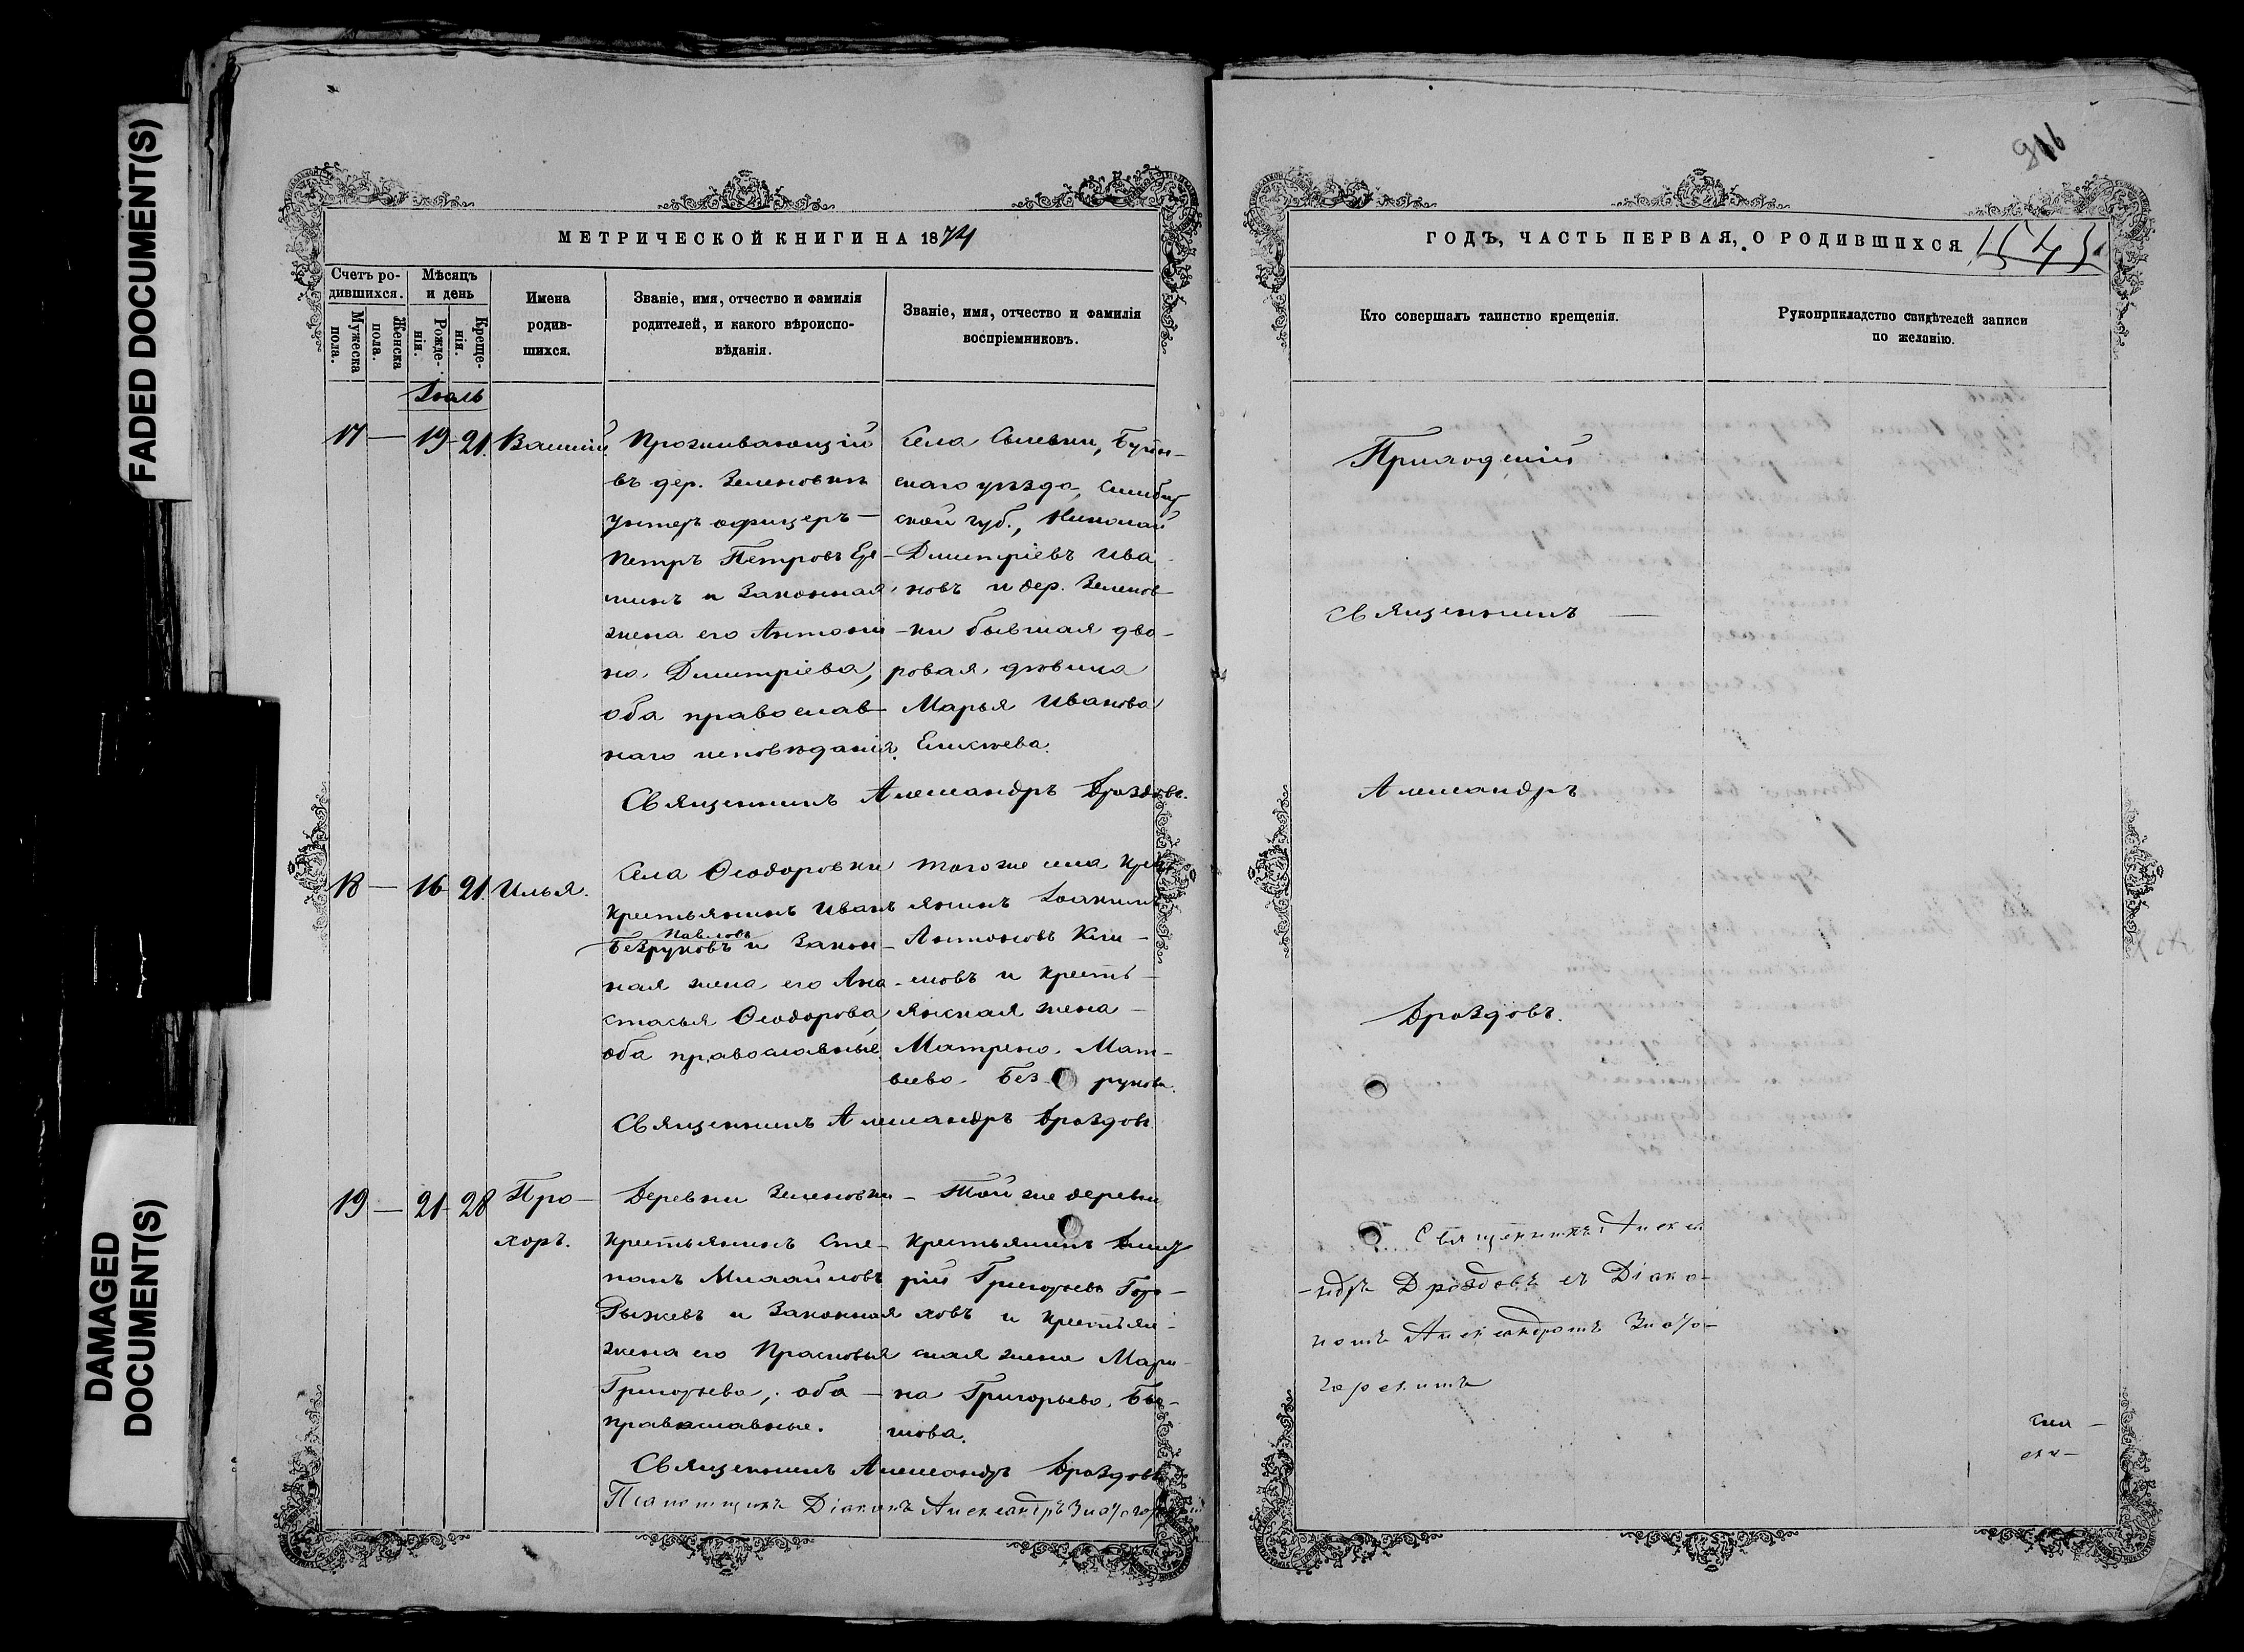 FADED DOCUMENT(S)
DAMAGED
DOCUMENT(S)
МЕТРИЧЕСКОЙ КНИГИ НА 1874
Счетъ ро-
дившихся.
Мужеска
пола.
Женска
пола.
Мѣсяцъ
и день
Рожде-
нія.
Креще-
нія.
Имена
родив-
шихся.
Званіе, имя, отчество и фамилія
родителей, и какого вѣроиспо-
вѣданія.
Званіе, имя, отчество и фамилія
воспріемниковъ.
Іюль
17 — 19 21. Василій
Проживающій
въ дер. Зеленовкѣ
унтеръ офицеръ —
Петръ Петровъ
и законная
жена его Антони-
на Димитріева,
оба православ-
наго исповѣданія.
Села Буин-
скаго уѣзда, Симбир
ской губ., Николай
Димитріевъ Ива-
новъ и дер. Зеленов-
ки бывшая дво-
ровая дѣвица
Марья Иванова
Елисѣева.
Священникъ Александръ Дроздовъ.
18 — 16 21. Илья.
Села Ѳеодоровки
крестьянинъ Иванъ
Павловъ
Безруковъ и закон-
ная жена его Ана-
стасья Ѳеодорова,
оба православные.
того же села крест
янинъ Іоакимъ
Антоновъ Кли-
мовъ и кресть-
янская жена —
Матрена Мат-
веева Без рукова.
Священникъ Александръ Дроздовъ.
19 — 21 28 Про-
хоръ.
Деревни Зеленовки
крестьянинъ Сте-
панъ Михайловъ
Рыжевъ и законная
жена его Прасковья
Григорьева, оба —
православные.
Той же деревни
крестьянинъ Дмит
рій Григорьевъ Горо-
ховъ и крестьян-
ская жена Мари-
на Григорьева
Священникъ Александръ Дроздовъ
Псаломщикъ Діаконъ Александръ Златого
ГОДЪ, ЧАСТЬ ПЕРВАЯ, О РОДИВШИХСЯ
Кто совершалъ таинство крещенія.
Рукоприкладство свидѣтелей записи
по желанію.
Приходскій
священникъ —
Александръ
Дроздовъ.
Священникъ Алекса
-ндръ Дроздовъ съ Діако-
номъ Александромъ